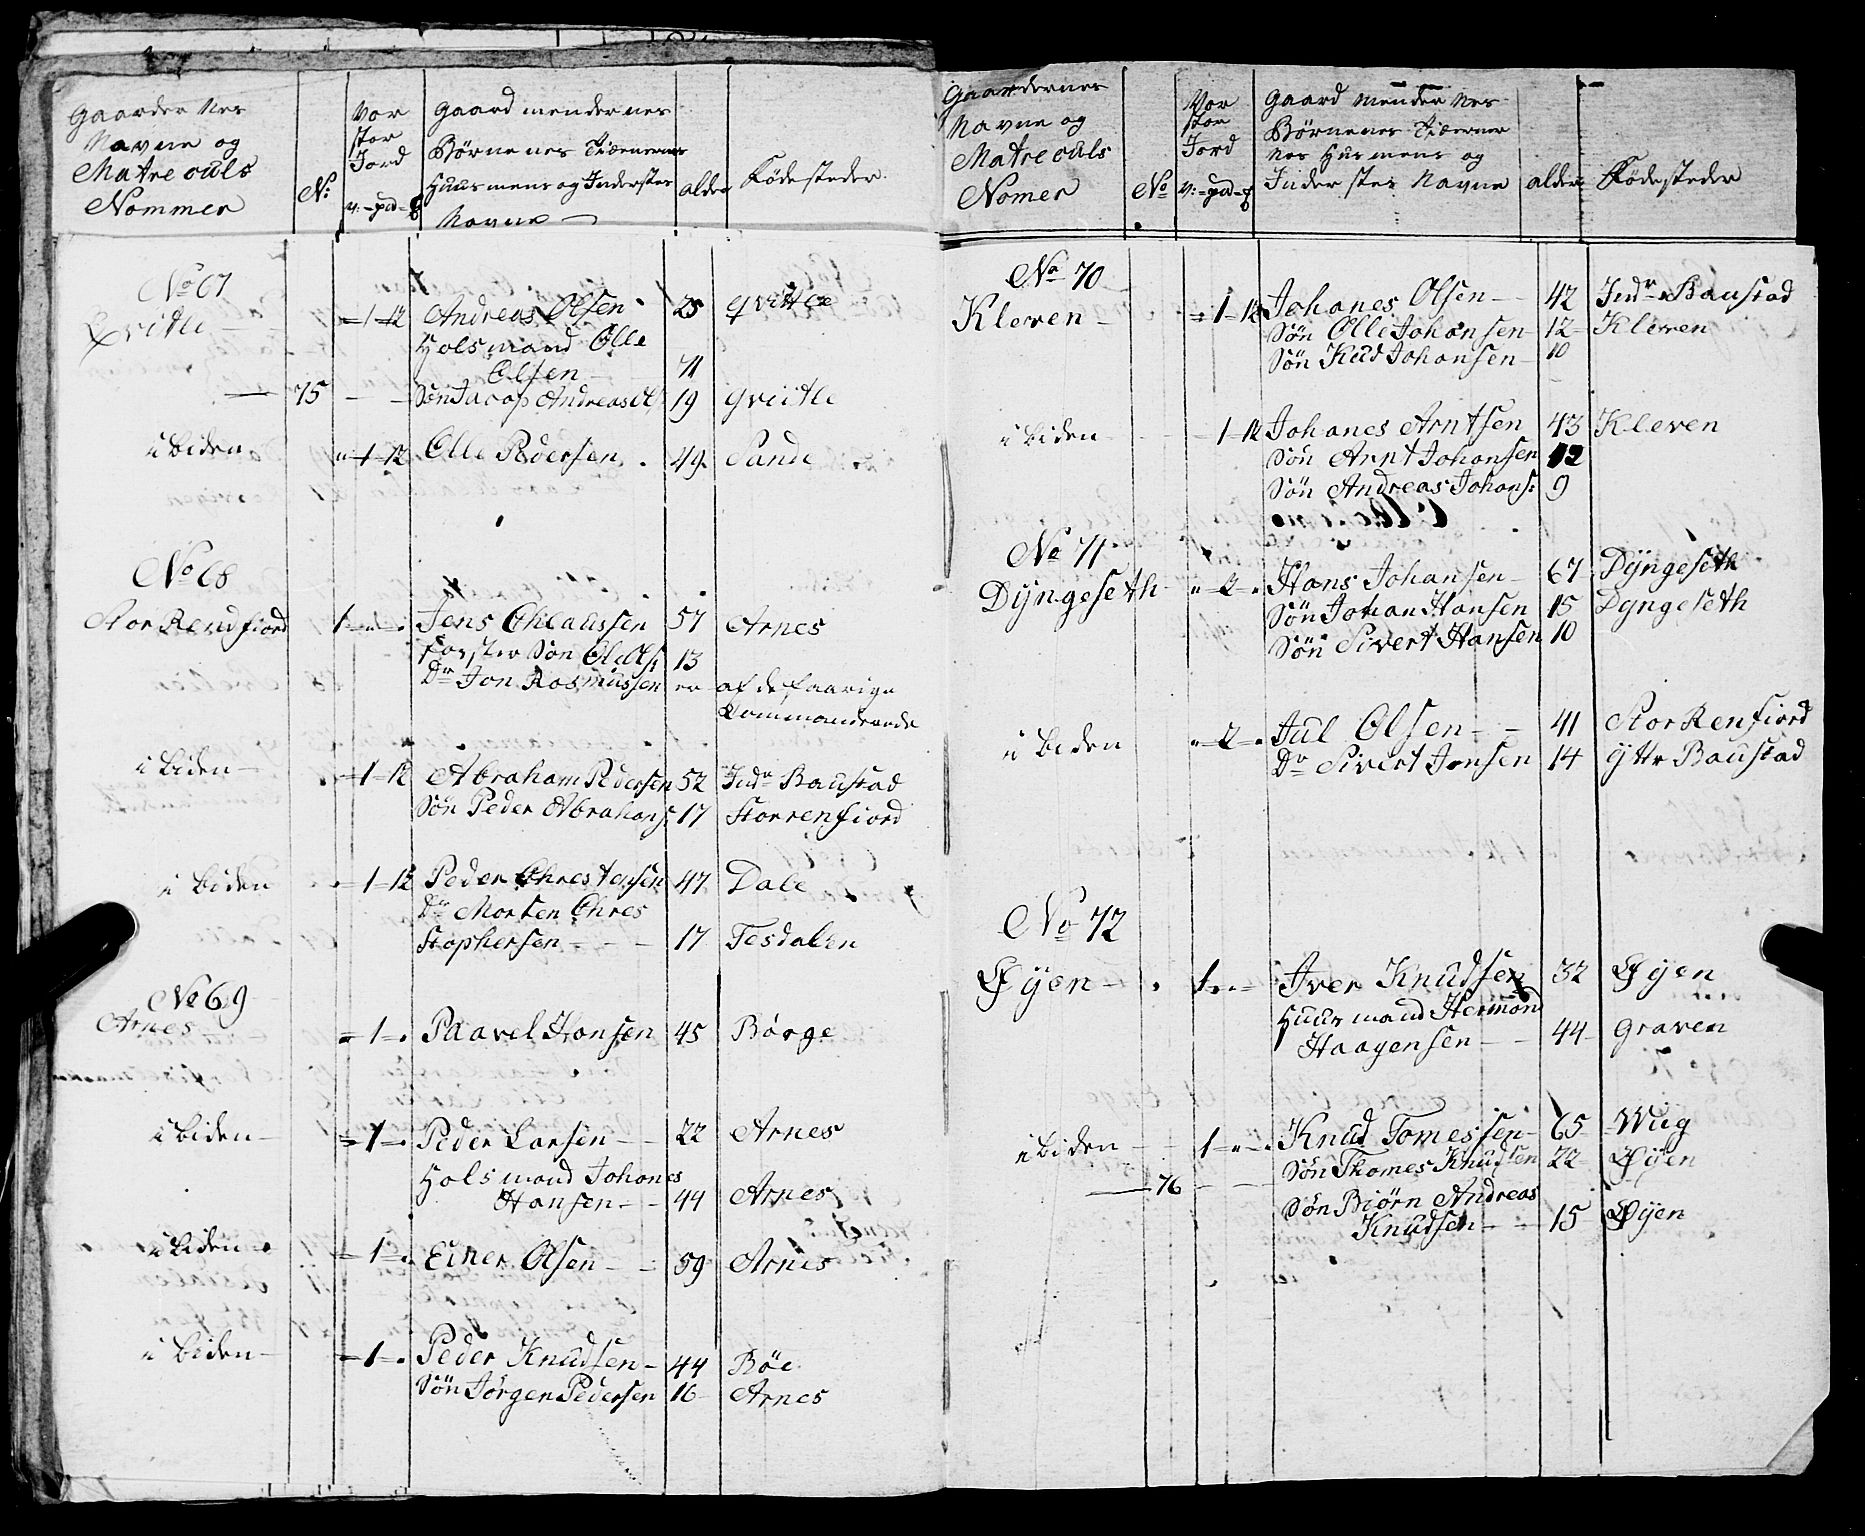 Gaardernes
Navne og
Matreculs
Nommer
No:
Vor
stor
Jord
v: - pd - ß
Gaardmendernes
Børnenes Tiænernes
Huusmens og Inderster
Navne
alder
Fødesteder
No 67
Qvitle
1 - 12 Andreas Olsen 25 qvitle
Holsmand Olle
Olsen 71
75 Søn Jacop Andreas Ols: 19 qviitle
i biden 1-12 Olle Pedersen 49 Sande
No 68
Stor Rendfiord 1 Jens Chlaussen 57 Arnes
Foster Søn Ole Ols: 13
Dr Jon Rosmussen er af de faarige
Commanderede
i biden 1-12 Abraham Pedersen 52 Indr Baustad
Søn Peder Abrahams: 17 Storrenfiord
i biden 1-12 Peder Chrestensen 47 Dale
Dr Morten Chres
stophersen 17 Tesdalen
No 69
Arnes 1 Paavel Hansen 45 Børge
i biden 1 Peder Larsen 22 Arnes
Holsmand Johanes
Hansen 44 Arnes
i biden 1 Einer Olsen 59 Arnes
i biden 1 Peder Knudsen 44 Böe
Søn Jørgen Pedersen 16 Arnes
Gaardernes
Navne og
Matreculs
Nomer
No
Vor
stor
Jord
v: - pd - ß
Gaard mendernes
Børnenes Tiæerner
nes Husmens og
Inderstes Navne
alder
Fødesteder
No 70
Kleven 1-12 Johanes Olsen 42 Indr Baustad
Søn Olle Johansen 12 Kleven
Søn Knd Johansen 10
i biden 1-12 Johanes Arntsen 43 Kleven
Søn Arnt Johansen 12
Søn Andreas Johans: 9
No 71
Dÿngeseth 2 Hans Johansen 67 Dÿngeseth
Søn Johan Hansen 15 Dyngeseth
Søn Sivert Hansen 10
i biden 2 Jul Olsen 41 Stor Renfiord
Dr Sivert Jonsen 14 Ytte Baustad
No 72
Øyen 1 Iver Knudsen 32 Øyen
Huusmand Hermond
Haagensen 44 Graven
i biden 1 Knud Tomessen 65 Wiig
76 Søn Thomes Knudsen 22 Øyen
Søn Biørn Andreas
Knudsen 15 Øyen